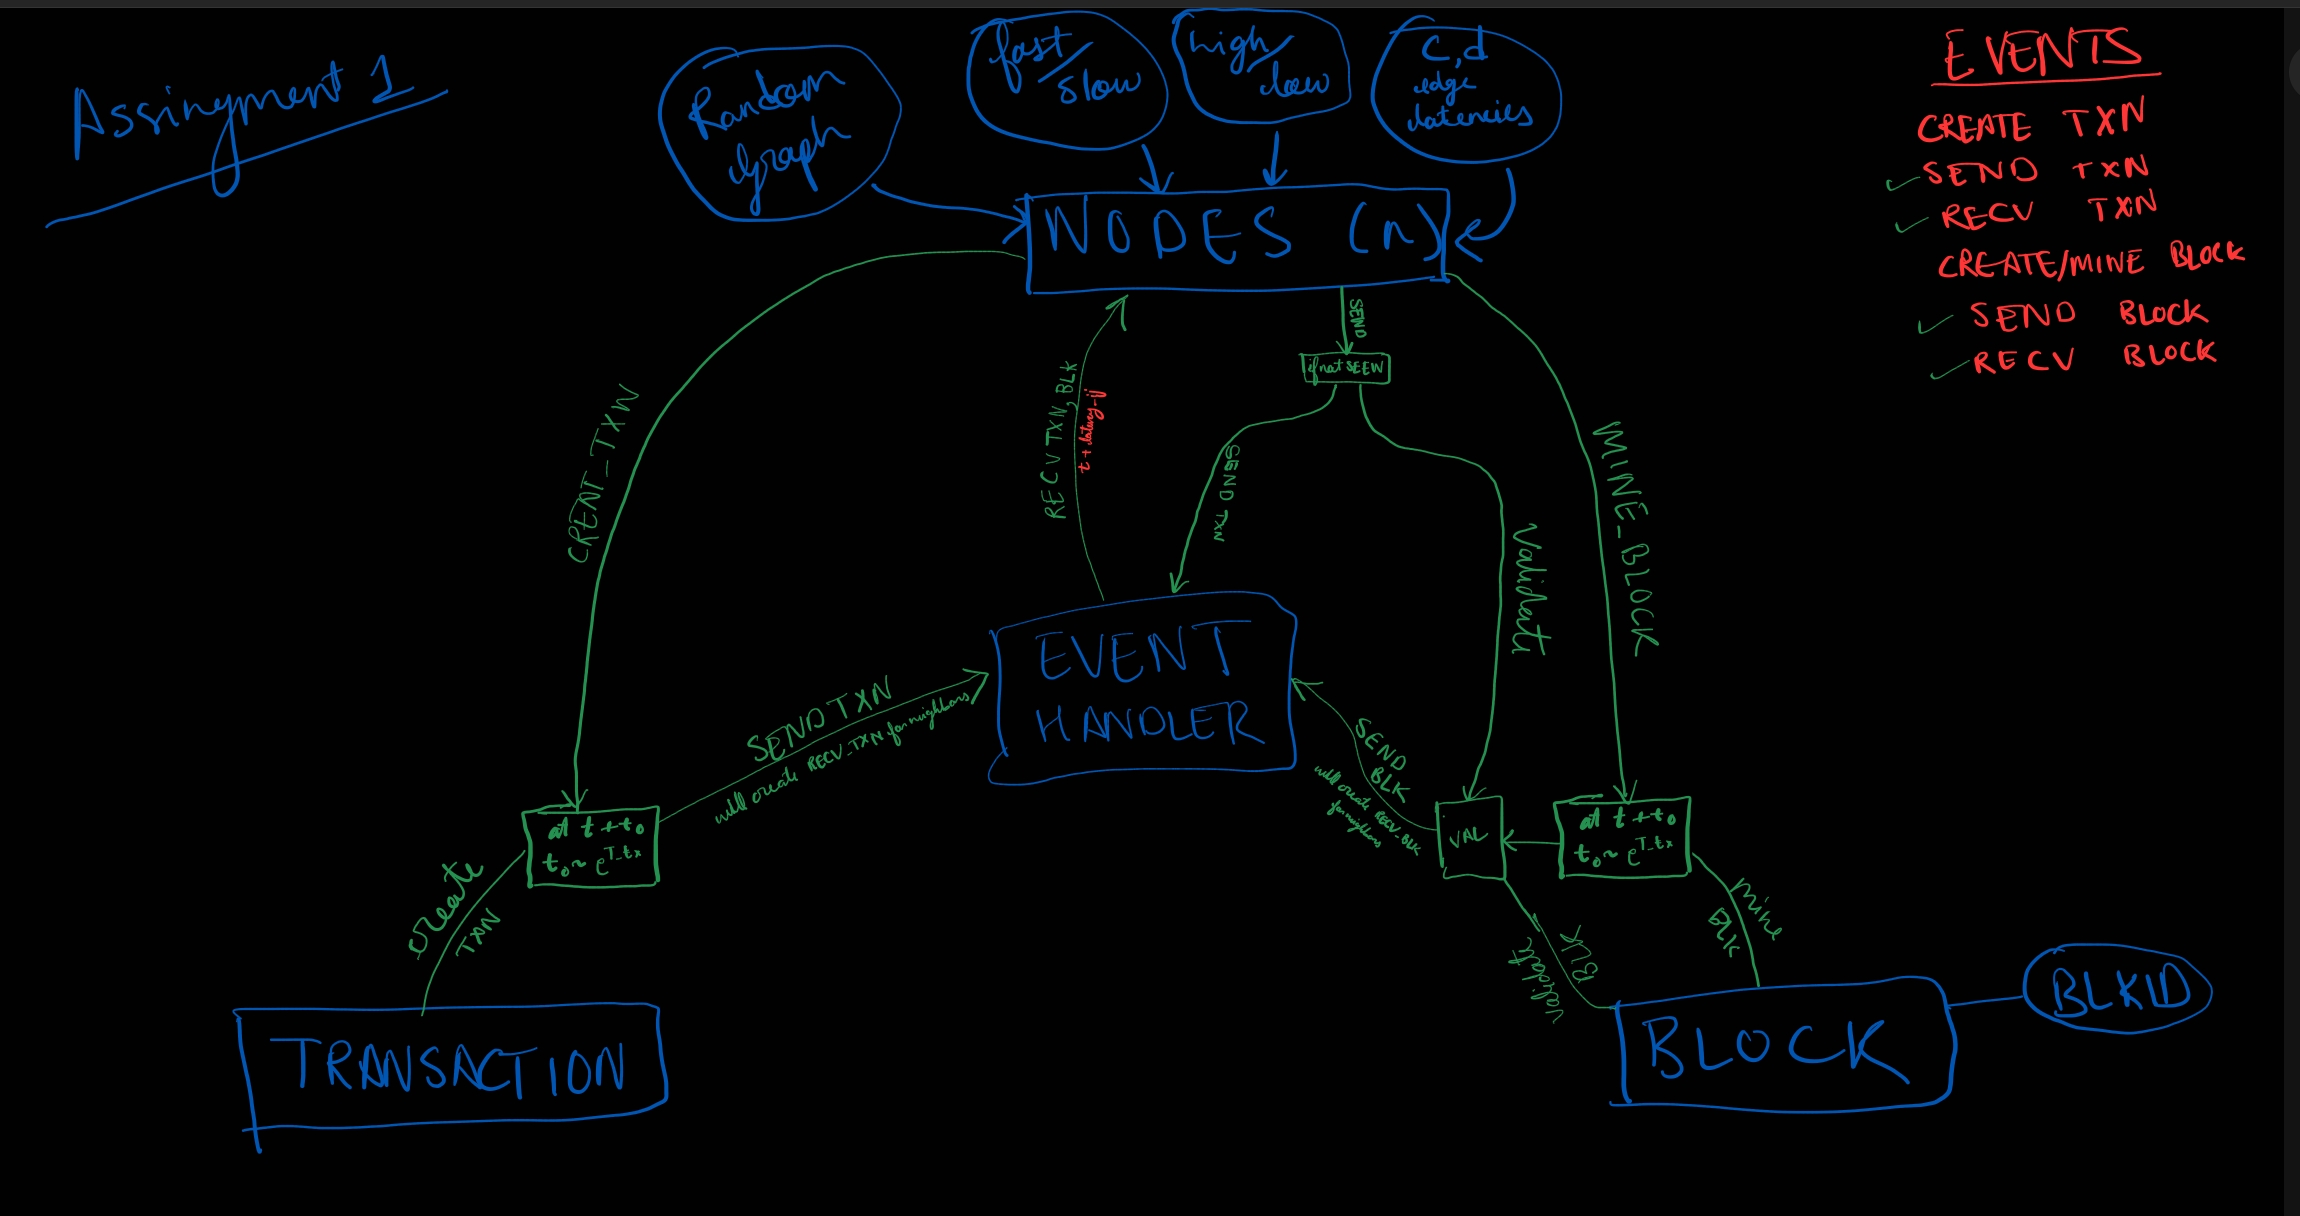 Assingment 1
Random
Graph
fast/
slow
high/
low
c,d
edge
latencies
EVENTS
CREATE TXN
SEND TXN
RECV TXN
CREATE/MINE BLOCK
SEND BLOCK
RECV BLOCK
NODES (n)
SEND
if not SEEN
CREAT_TXN
RECV TXN, BLK
t + latency-ij
SEND TXN
Validate
MINE_BLOCK
EVENT
HANDLER
SEND TXN
will create RECV_TXN for neighbors
SEND
BLK
will create RECV_BLK
for neighbors
at t + t₀
t₀ ~ e^T_tx
VAL
at t + t₀
t₀ ~ e^T_tx
create
TXN
validate
BLK
mine
BLK
TRANSACTION
BLOCK
BLKID